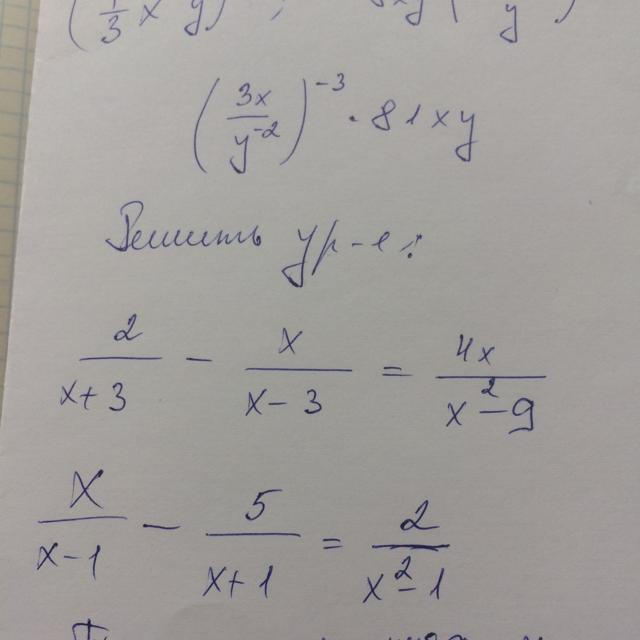 (3x/y⁻²)⁻³ · 81xy
Решить ур-е:
2/(x+3) - x/(x-3) = 4x/(x²-9)
x/(x-1) - 5/(x+1) = 2/(x²-1)